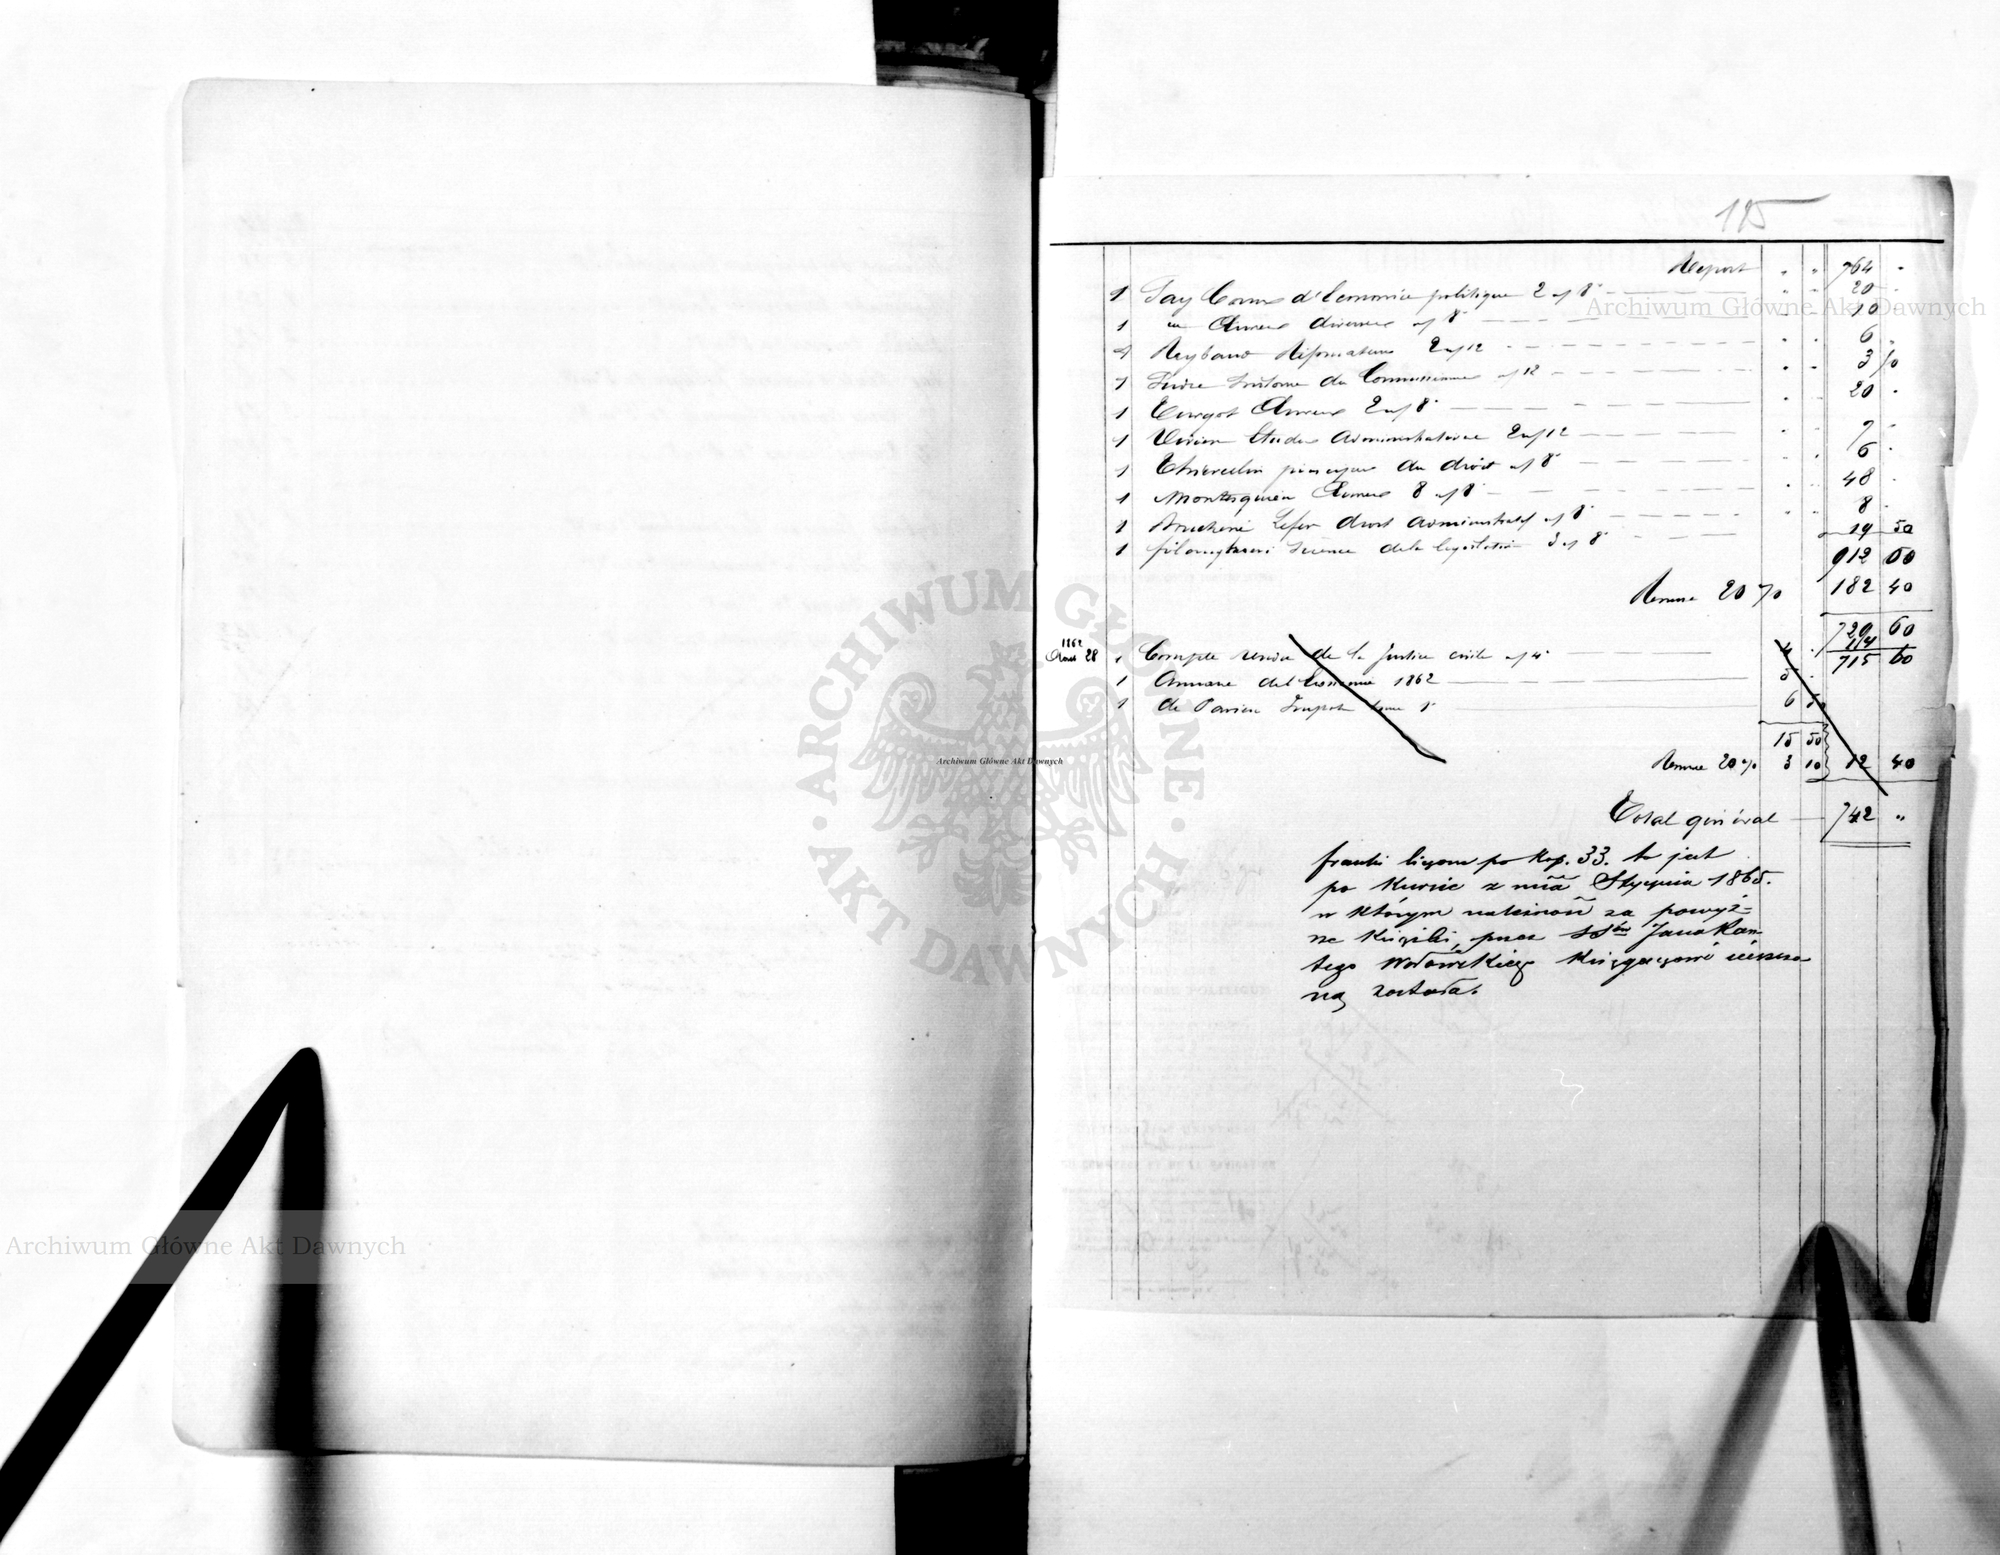 125
Report " " 764 "
1 Say Cours d'Economie politique 2 vf 8° " " 20 "
1 " Œuvres diverses vf 8° " " 10 "
1 Reybaud Réformateurs 2 vf 12 6 "
1 Sudre histoire du Communisme vf 12 " " 3 50
1 Turgot Œuvres 2 vf 8° " 20 "
1 Vivien Etudes administratives 2 vf 12 " " 7 "
1 Thiercelin principes du droit vf 8° " " 6 "
1 Montesquieu Œuvres 8 vf 8° " " 48 "
1 Lefer droit administratif vf 8° " " 8 "
1 filangheri Science de la législation 3 vf 8° 19 50
912 00
Remise 20 % 182 40
729 60
114
715 60
1862
Aout 28 1 Compte rendu de la Justice civile vf 4° 4 "
1 Annuaire de l'Economie 1862 5 "
1 de Parieu Impots tome 1° 6 50
15 50
Remise 20 % 3 10 12 40
Total général 742 "
franki liczone po kop. 33. to jest
po kursie z mca Stycznia 1865.
w którym należność za powyż=
sze książki, przez Jana Kan=
tego Wołowskiego Księgarzowi
ną została.
Archiwum Główne Akt Dawnych
ARCHIWUM GŁÓWNE
AKT DAWNYCH
Archiwum Główne Akt Dawnych
Archiwum Główne Akt Dawnych